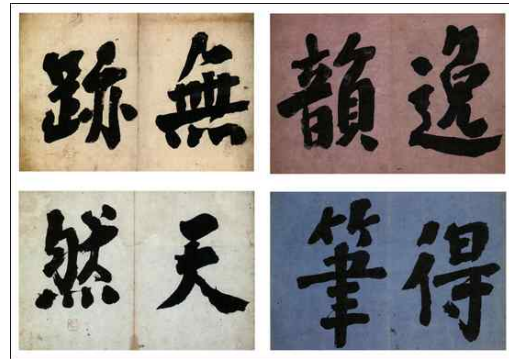 逸韻
無跡
得筆
天然